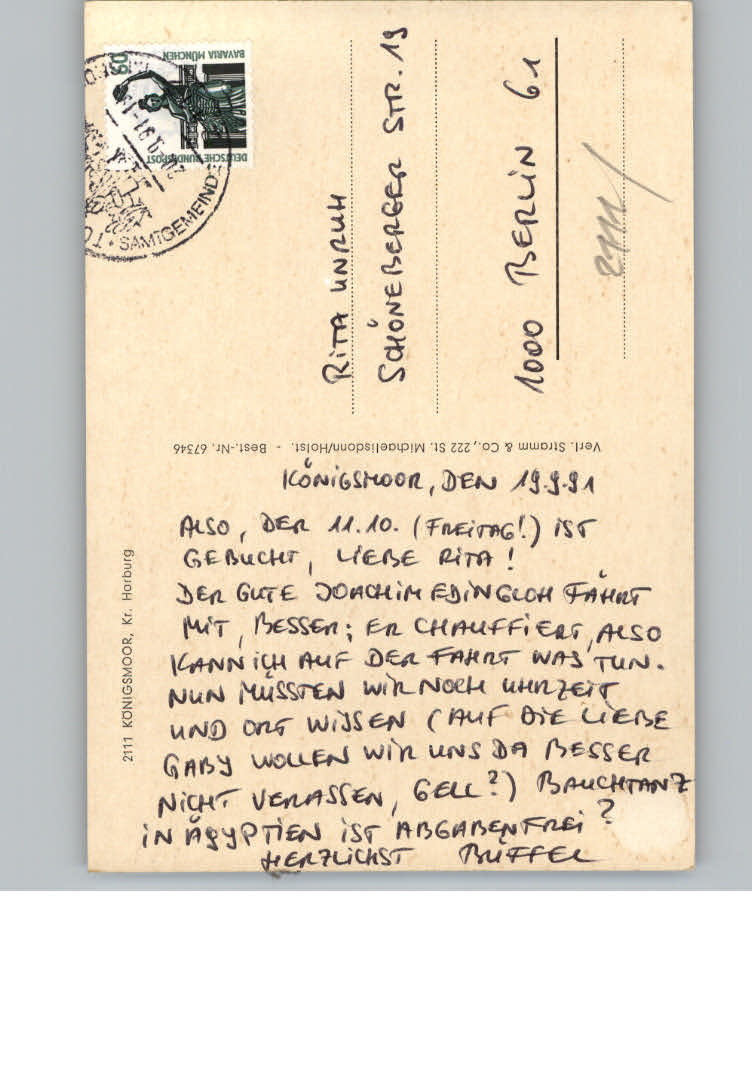 DEUTSCHE BUNDESPOST
60
BAVARIA MÜNCHEN
SAMTGEMEINDE
RITA UNRUH
SCHÖNEBERGER STR. 19
1000 BERLIN 61
2111/
Verl. Stramm & Co., 222 St. Michaelisdonn/Holst. - Best.-Nr. 67346
2111 KÖNIGSMOOR, Kr. Harburg
KÖNIGSMOOR, DEN 19.9.91
ALSO, DER 11.10. (FREITAG!) IST
GEBUCHT, LIEBE RITA!
DER GUTE JOACHIM FÄHRT
MIT, BESSER; ER CHAUFFIERT, ALSO
KANN ICH AUF DER FAHRT WAS TUN.
NUN MÜSSTEN WIR NOCH UHRZEIT
UND ORT WISSEN (AUF DIE LIEBE
GABY WOLLEN WIR UNS DA BESSER
NICHT VERASSEN, GELL?) BAUCHTANZ
IN ÄGYPTIEN IST ABGABENFREI?
HERZLICHST BÜFFEL